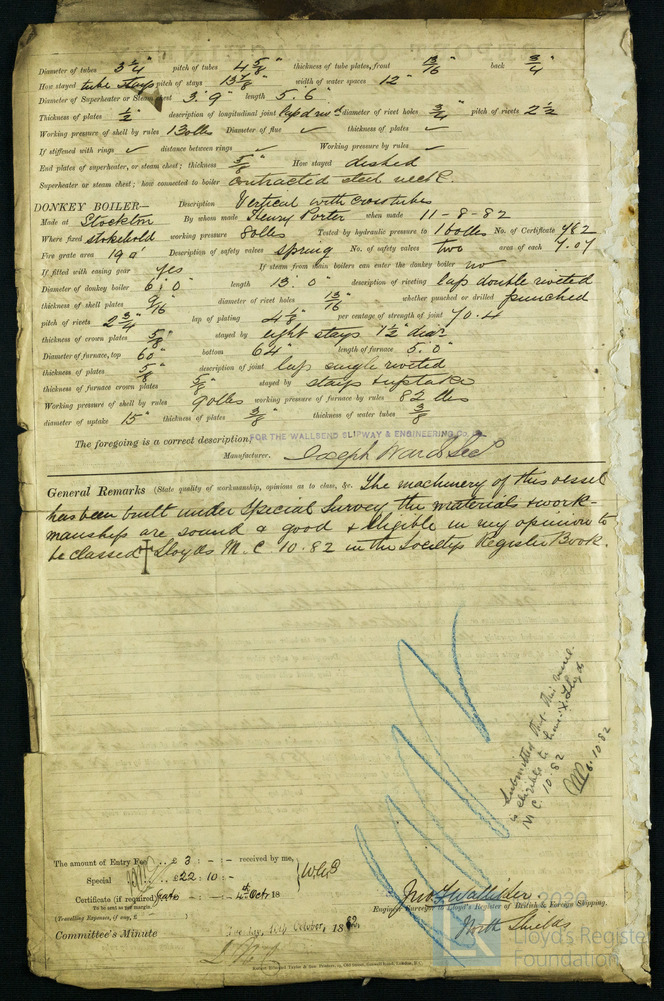 Diameter of tubes 3 1/4" pitch of tubes 4 5/8" thickness of tube plates, front 13/16" back 3/4"
How stayed tube stays pitch of stays 13 7/8" width of water spaces 12"
Diameter of Superheater or Steam chest 3' 9" length 5' 6"
Thickness of plates 1/2" description of longitudinal joint lap d riv'd diameter of rivet holes 3/4" pitch of rivets 2 1/2
Working pressure of shell by rules 130 lbs Diameter of flue ✓ thickness of plates ✓
If stiffened with rings ✓ distance between rings ✓ Working pressure by rules ✓
End plates of superheater, or steam chest; thickness 5/8" How stayed dished
Superheater or steam chest; how connected to boiler contracted steel neck.
DONKEY BOILER— Description Vertical with crosstubes
Made at Stockton By whom made Henry Porter when made 11-8-82
Where fixed stokehold working pressure 80 lbs Tested by hydraulic pressure to 160 lbs No. of Certificate 982
Fire grate area 19 □' Description of safety valves spring No. of safety valves two area of each 7.07
If fitted with easing gear yes If steam from main boilers can enter the donkey boiler no
Diameter of donkey boiler 6' 0" length 13' 0" description of riveting lap double riveted
thickness of shell plates 9/16 diameter of rivet holes 13/16 whether punched or drilled punched
pitch of rivets 2 3/4" lap of plating 4 1/8" per centage of strength of joint 70.4
thickness of crown plates 5/8 stayed by eight stays 1 1/2" diar
Diameter of furnace, top 60" bottom 64" length of furnace 5' 0"
thickness of plates 5/8 description of joint lap single riveted
thickness of furnace crown plates 5/8 stayed by stays & uptake
Working pressure of shell by rules 90 lbs working pressure of furnace by rules 82 lbs
diameter of uptake 15" thickness of plates 3/8" thickness of water tubes 3/8
The foregoing is a correct description, FOR THE WALLSEND SLIPWAY & ENGINEERING Co.
Manufacturer. Joseph Ward Sec
General Remarks (State quality of workmanship, opinions as to class, &c. The machinery of this vessel
has been built under Special Survey the materials & work-
manship are sound & good & eligible in my opinion to
be classed ✠ Lloyds M. C 10.82 in the Societys Register Book.
Submitted that this vessel
is eligible to have ✠ Lloyds
M C. 10.82
6.10.82
The amount of Entry Fee .. £ 3 : - : - received by me,
Special .. £22 : 10 : -
Certificate (if required) Gratis 4th Octr 18
To be sent as per margin.
(Travelling Expenses, if any, £ )
Committee's Minute Tuesday, 10th October, 1882
Engineer Surveyor to Lloyd's Register of British & Foreign Shipping.
North Shields
2020
Lloyd's Register
Foundation